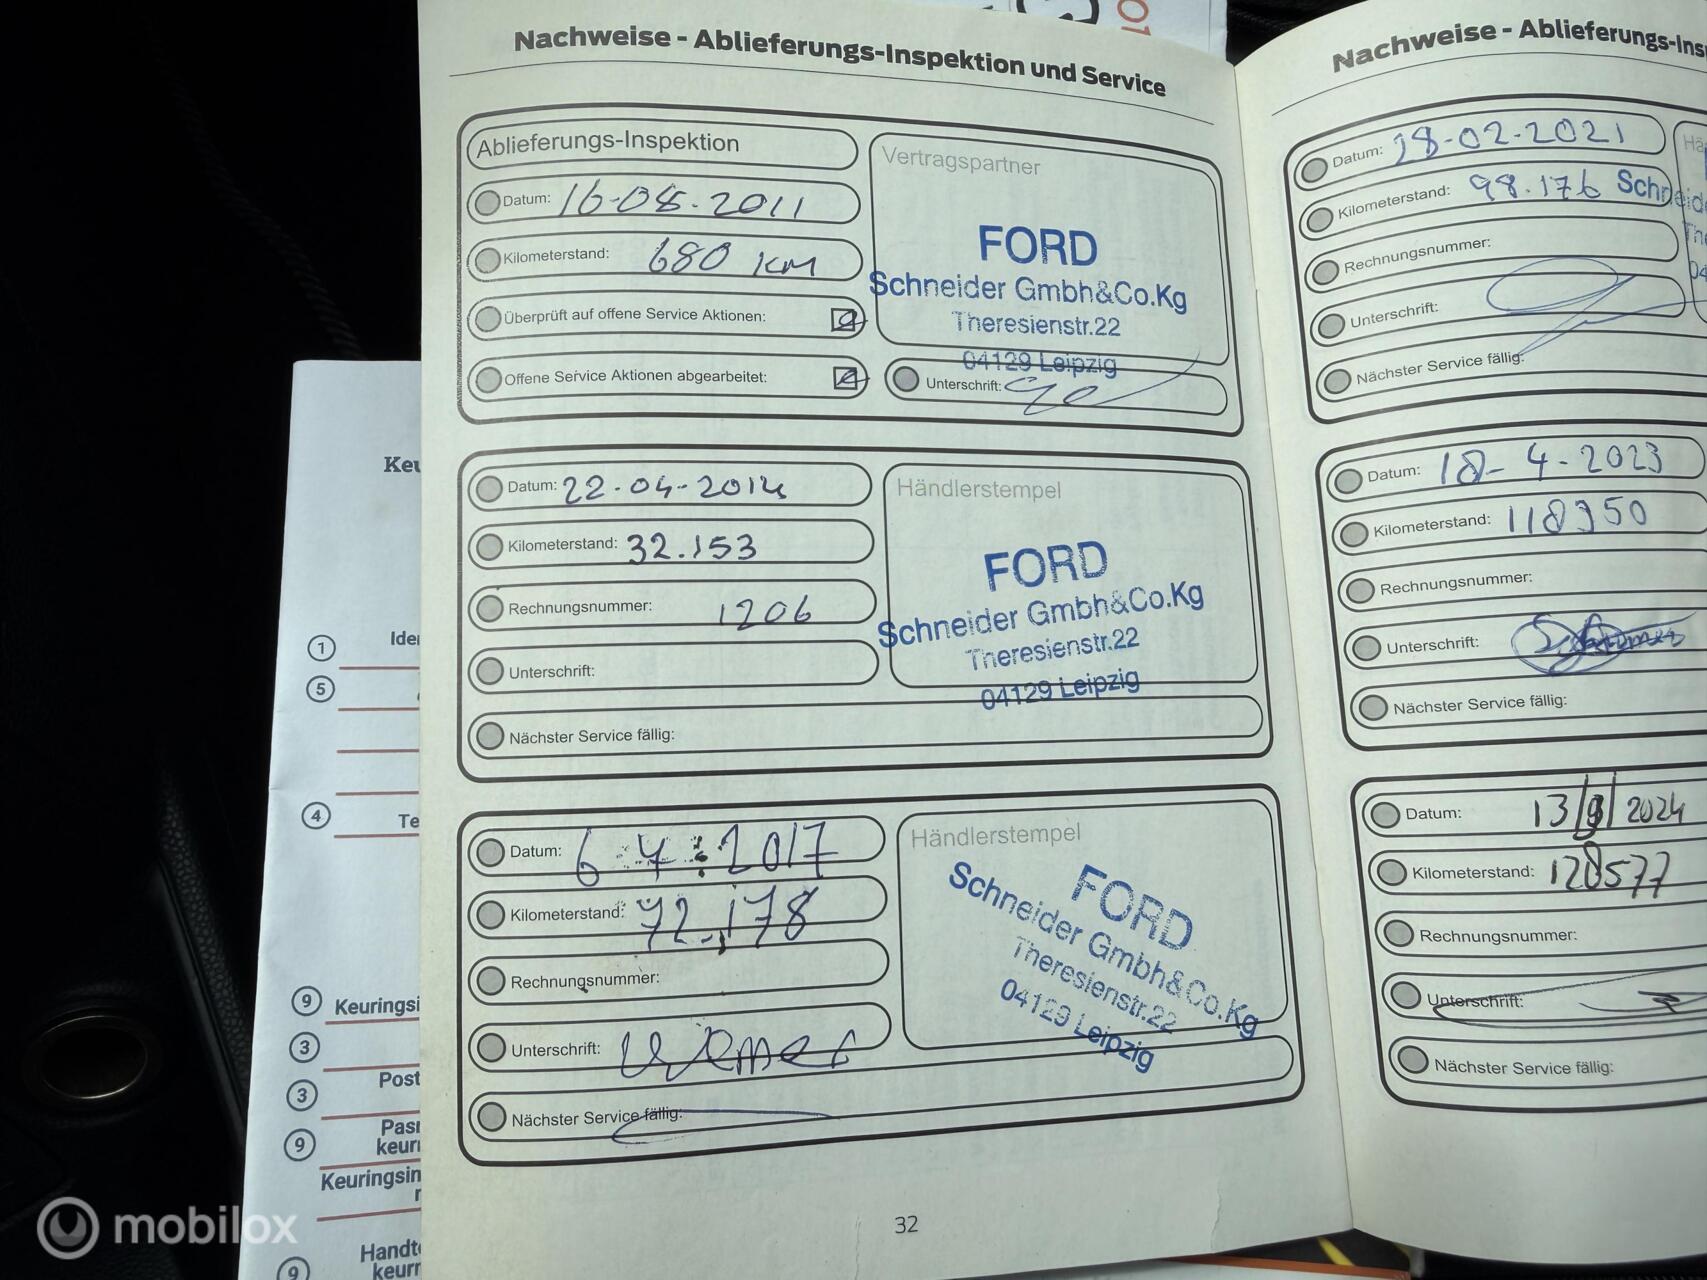 Nachweise - Ablieferungs-Inspektion und Service
Ablieferungs-Inspektion
Datum: 16-08-2011
Kilometerstand: 680 KM
Überprüft auf offene Service Aktionen:
Offene Service Aktionen abgearbeitet:
Vertragspartner
FORD
Schneider Gmbh&Co.Kg
Theresienstr.22
04129 Leipzig
Unterschrift:
Datum: 22-04-2014
Kilometerstand: 32.153
Rechnungsnummer: 1206
Unterschrift:
Nächster Service fällig:
Händlerstempel
FORD
Schneider Gmbh&Co.Kg
Theresienstr.22
04129 Leipzig
Datum: 6 4 2017
Kilometerstand: 72.178
Rechnungsnummer:
Unterschrift:
Nächster Service fällig:
Händlerstempel
FORD
Schneider Gmbh&Co.Kg
Theresienstr.22
04129 Leipzig
32
Nachweise - Ablieferungs-Ins
Datum: 18-02-2021
Kilometerstand: 98.176
Schneid
Rechnungsnummer:
Unterschrift:
Nächster Service fällig:
Hä
Datum: 18-4-2023
Kilometerstand: 118350
Rechnungsnummer:
Unterschrift:
Nächster Service fällig:
Datum: 13/9/2024
Kilometerstand: 128577
Rechnungsnummer:
Unterschrift:
Nächster Service fällig:
Keu
1 Ide
5
4 Te
9 Keuringsi
3
3 Post
9 Pas
keur
Keuringsin
9 Handt
keurr
mobilox